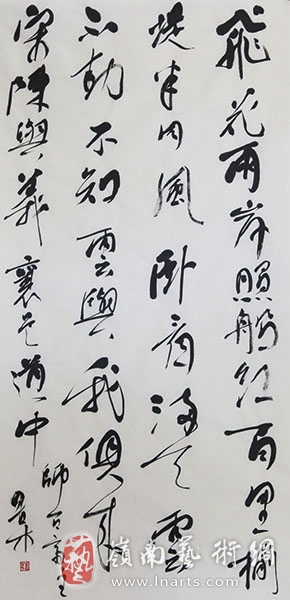 飛花兩岸照船紅百里榆
堤半日風卧看滿天雲
不動不知雲與我俱東
宋陳與義襄邑道中
師百齋主
藝 嶺南藝術網
www.lnarts.com